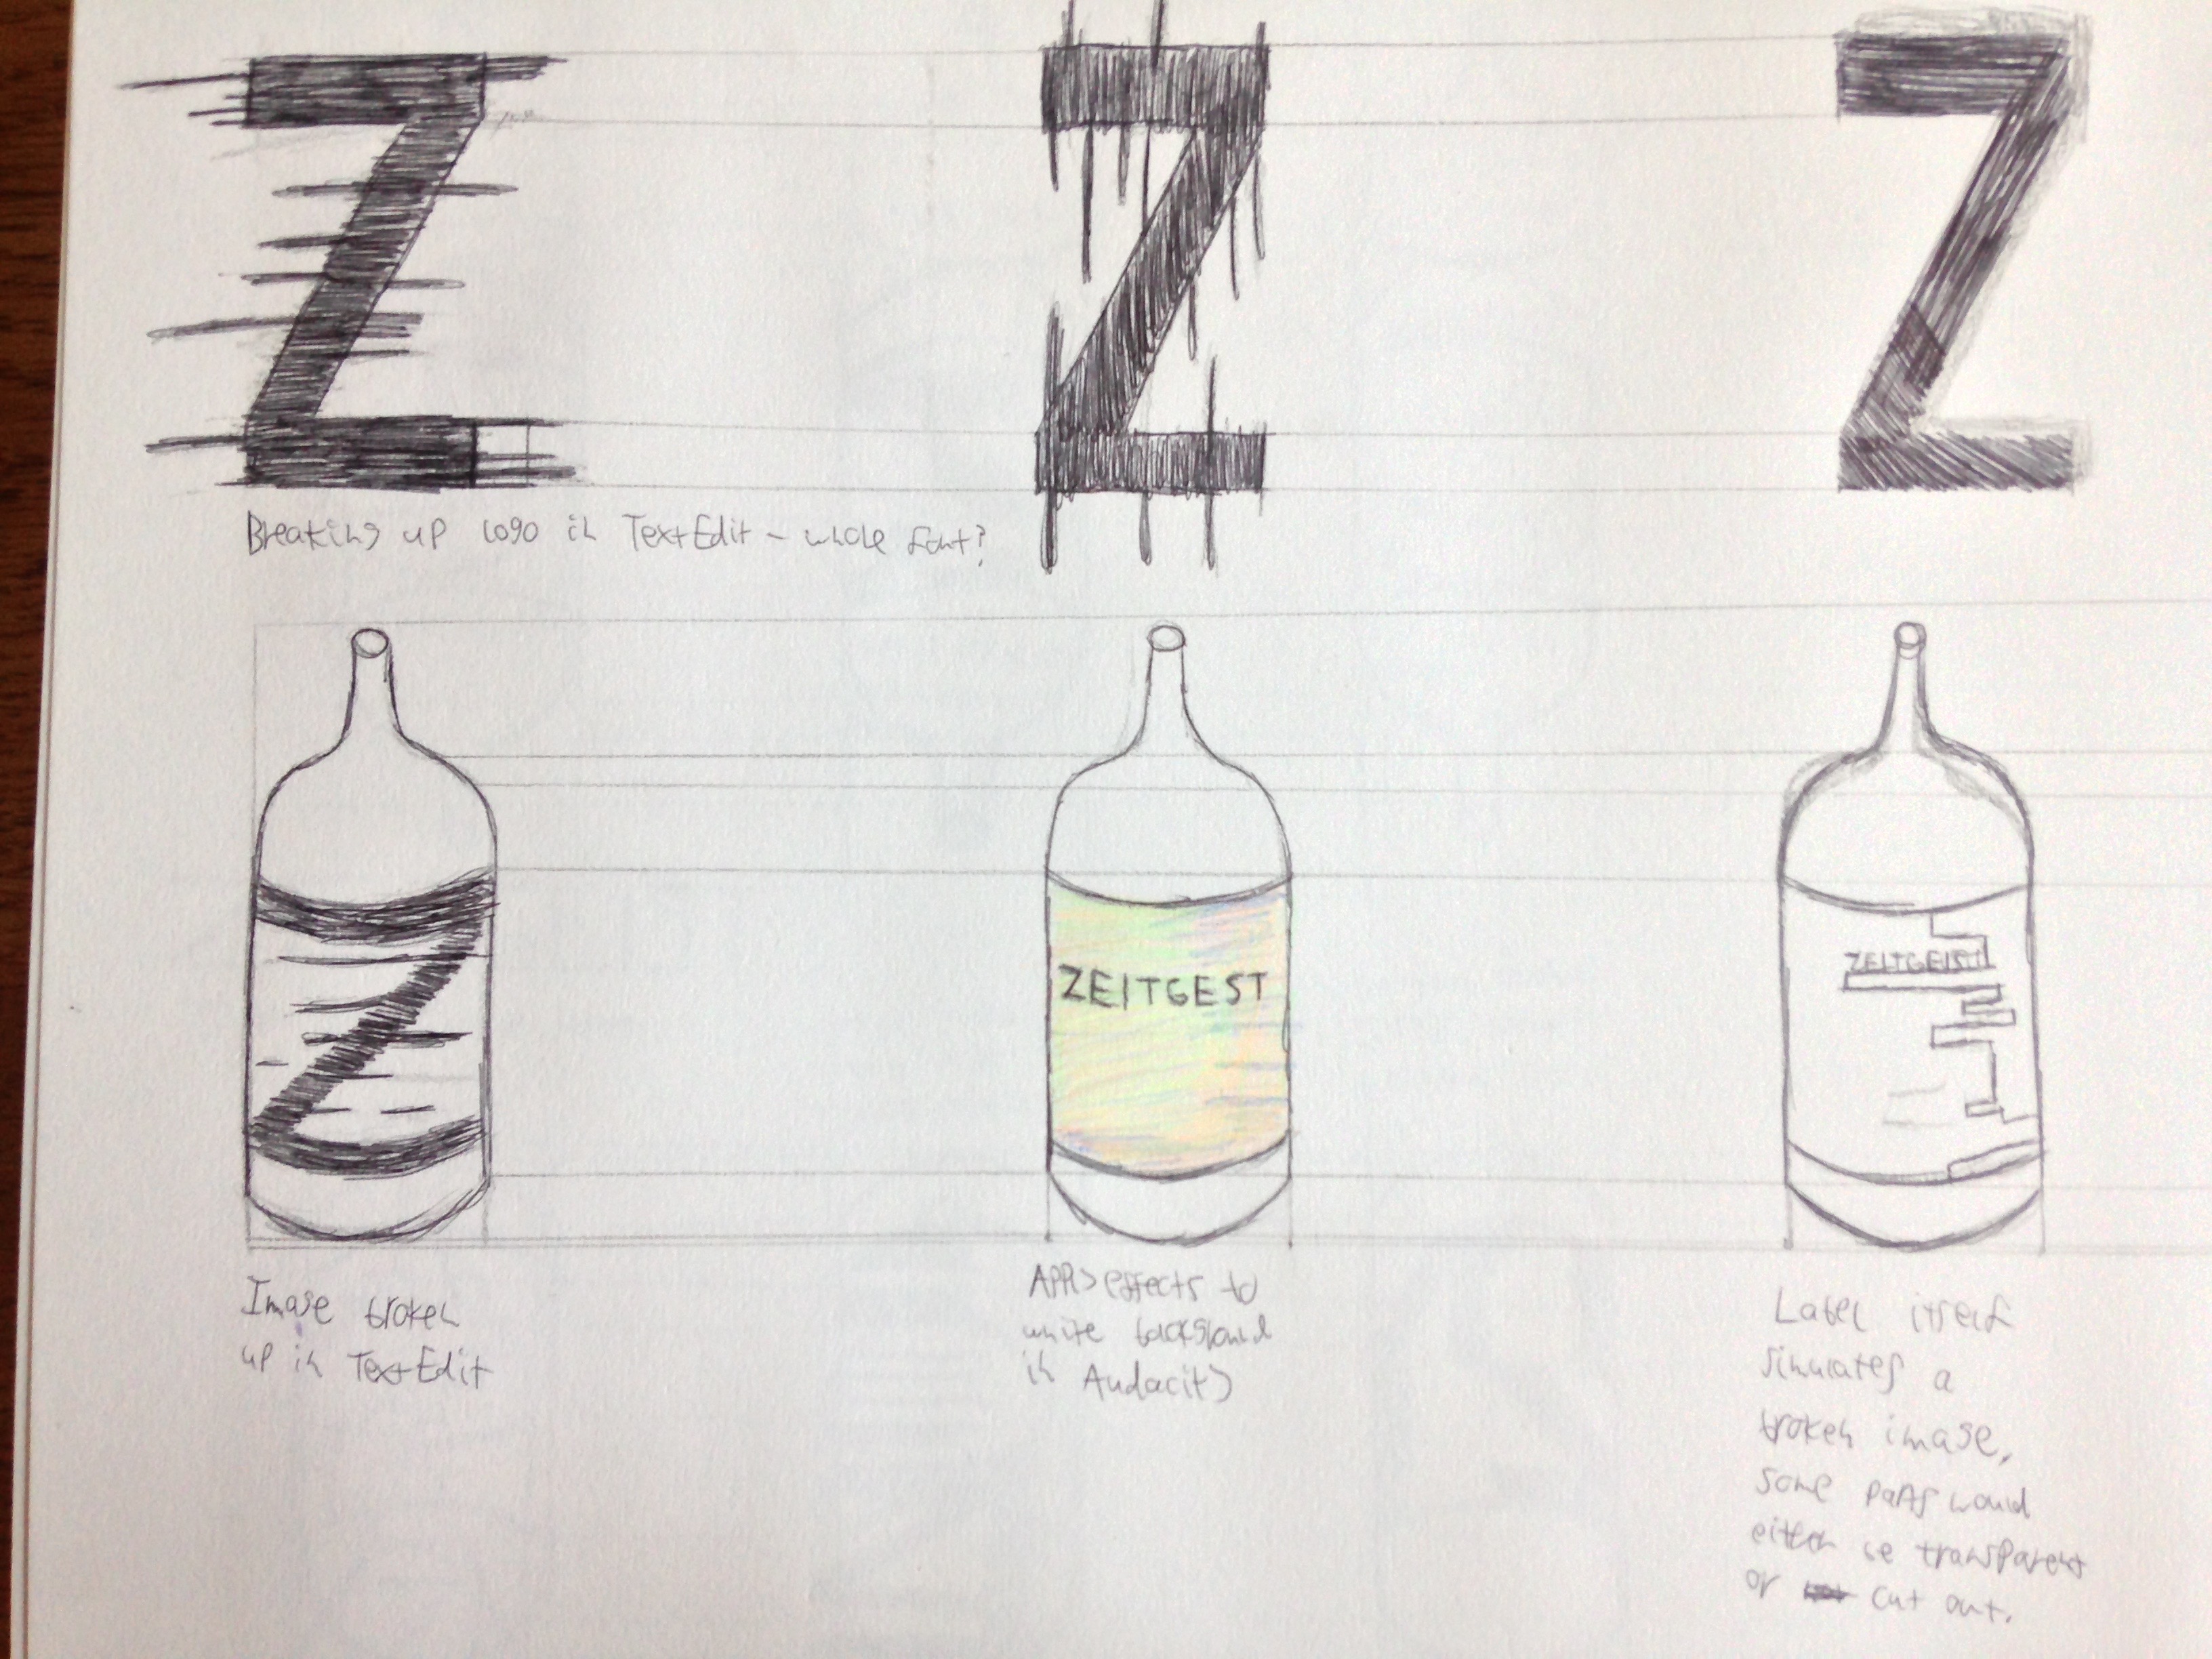 Z Z Z
Breaking up logo in TextEdit - whole font?
Z
ZEITGEST
ZEITGEIST
Image broken
up in TextEdit
Apply effects to
white background
in Audacity
Label itself
simulates a
broken image,
some parts would
either be transparent
or cut out.